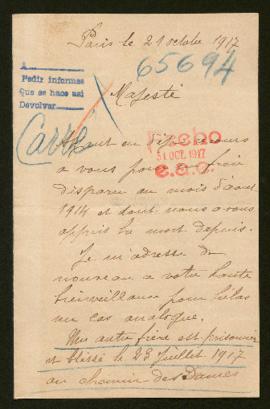 Paris le 21 octobre 1917
65694
A
Pedir informes
Que se hace asi
Devolver
Majesté
Carré
Ayant eu déjà recours
Fecho
31 OCT. 1917
à vous pour un frère
disparu au mois d'août
1914 et dont nous avons
appris la mort depuis.
Je m'adresse de
nouveau à votre haute
bienveillance pour hélas
un cas analogue.
Mon autre frère est prisonnier
et blessé le 23 juillet 1917
au chemin des Dames